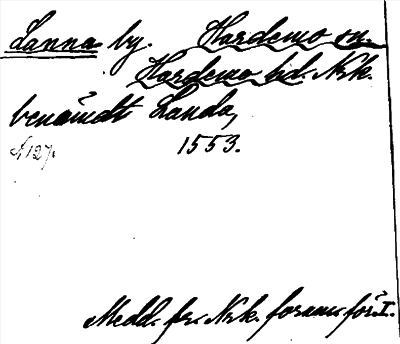 Lanna by. Hardemo sn.
Hardemo hd. Nrk.
benämdt Landa,
N 127. 1553.
Medd. fr. Nrk. fornm. för. I.